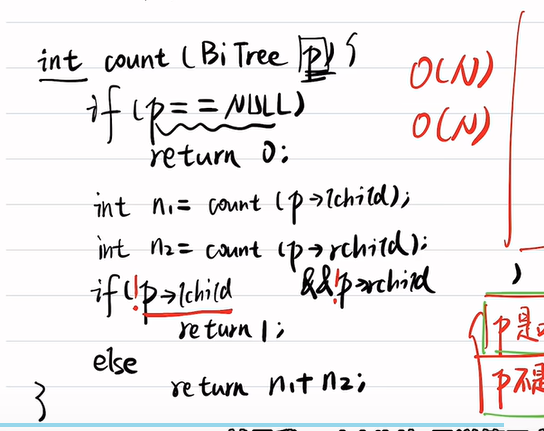 int count (BiTree p) {
if (p == NULL)
return 0;
int n1 = count (p->lchild);
int n2 = count (p->rchild);
if (!p->lchild && !p->rchild
return 1;
else
return n1 + n2;
}
O(N)
O(N)
)
p是
p不是